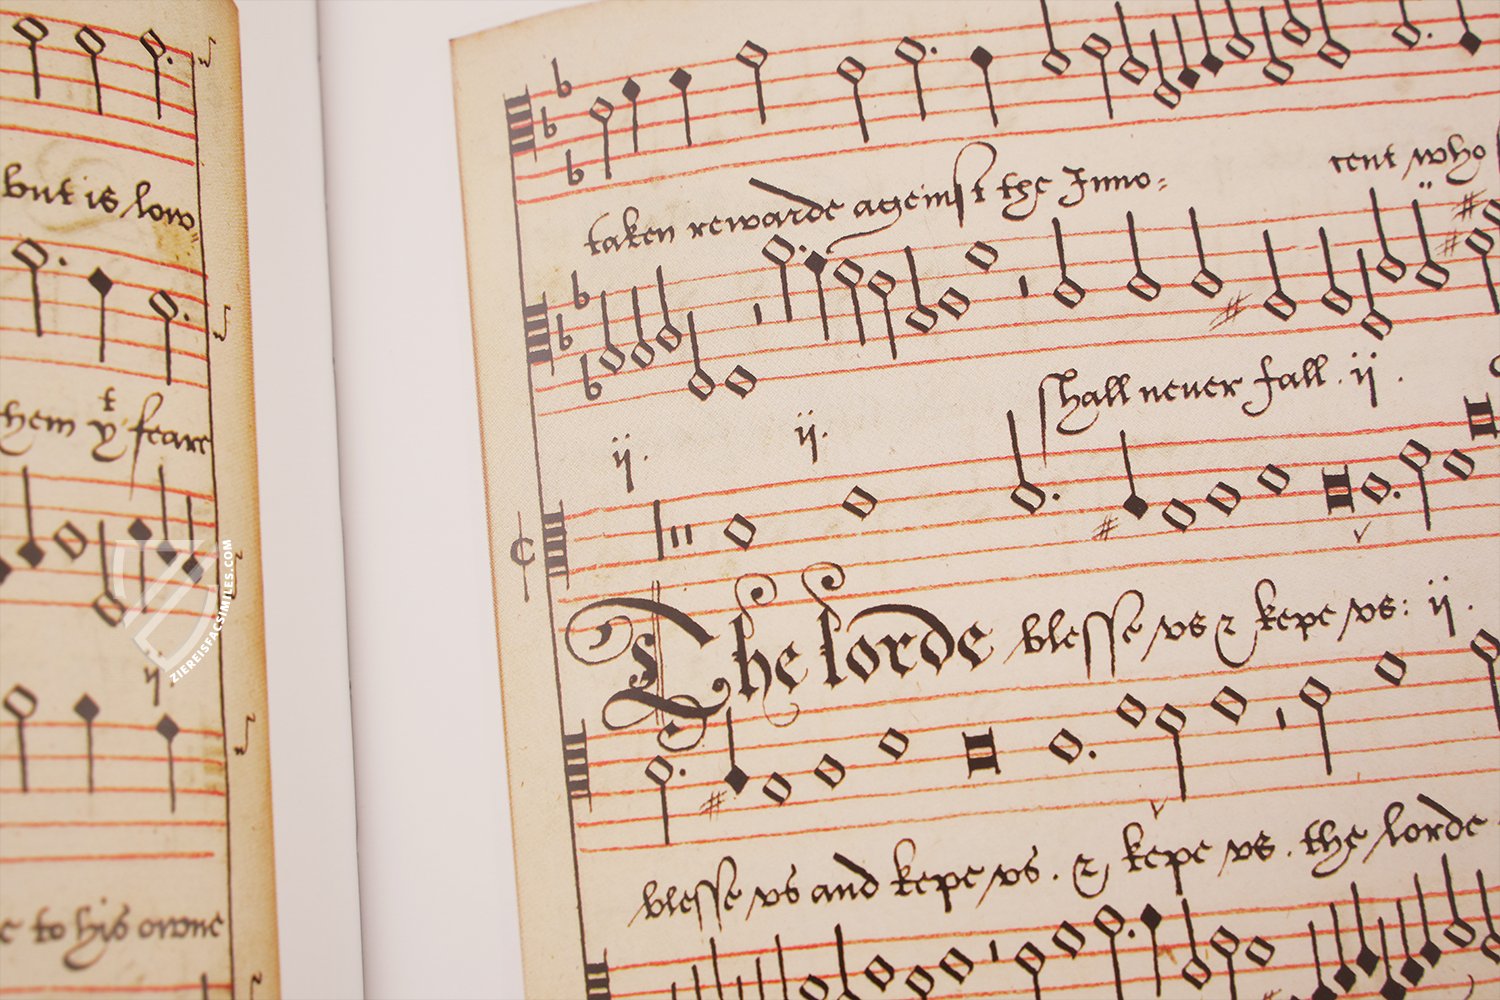 but is low
hem yt feare
ij.
e to his owne
taken rewarde ageinst the Inno:
cent who
ij. ij. shall never fall. ij.
The lorde blesse vs & kepe vs: ij.
blesse vs and kepe vs. & kepe vs. the lorde
ZIEREISFACSIMILES.COM